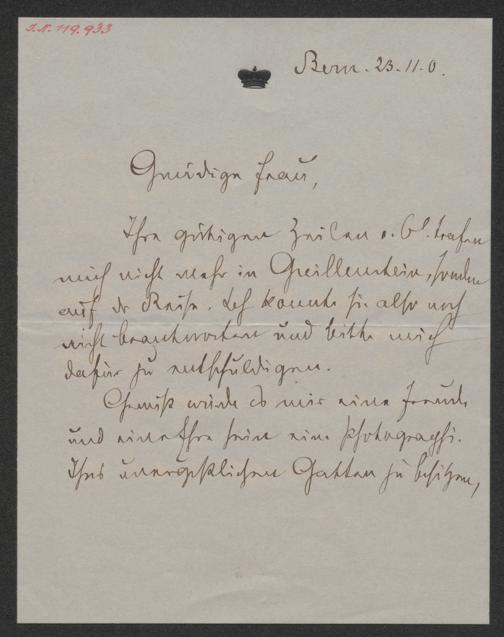 I.N. 119.933
Bern. 23.11.0.
Gnädige Frau,
Ihre gütigen Zeilen v. 6t. trafen
mich nicht mehr in Greillenstein, sondern
auf der Reise. Ich konnte sie also noch
nicht beantworten und bitte mich
dafür zu entschuldigen.
Gewiß würde es mir eine Freude
und eine Ehre sein eine Photographi.
Ihres unvergeßlichen Gatten zu besitzen,